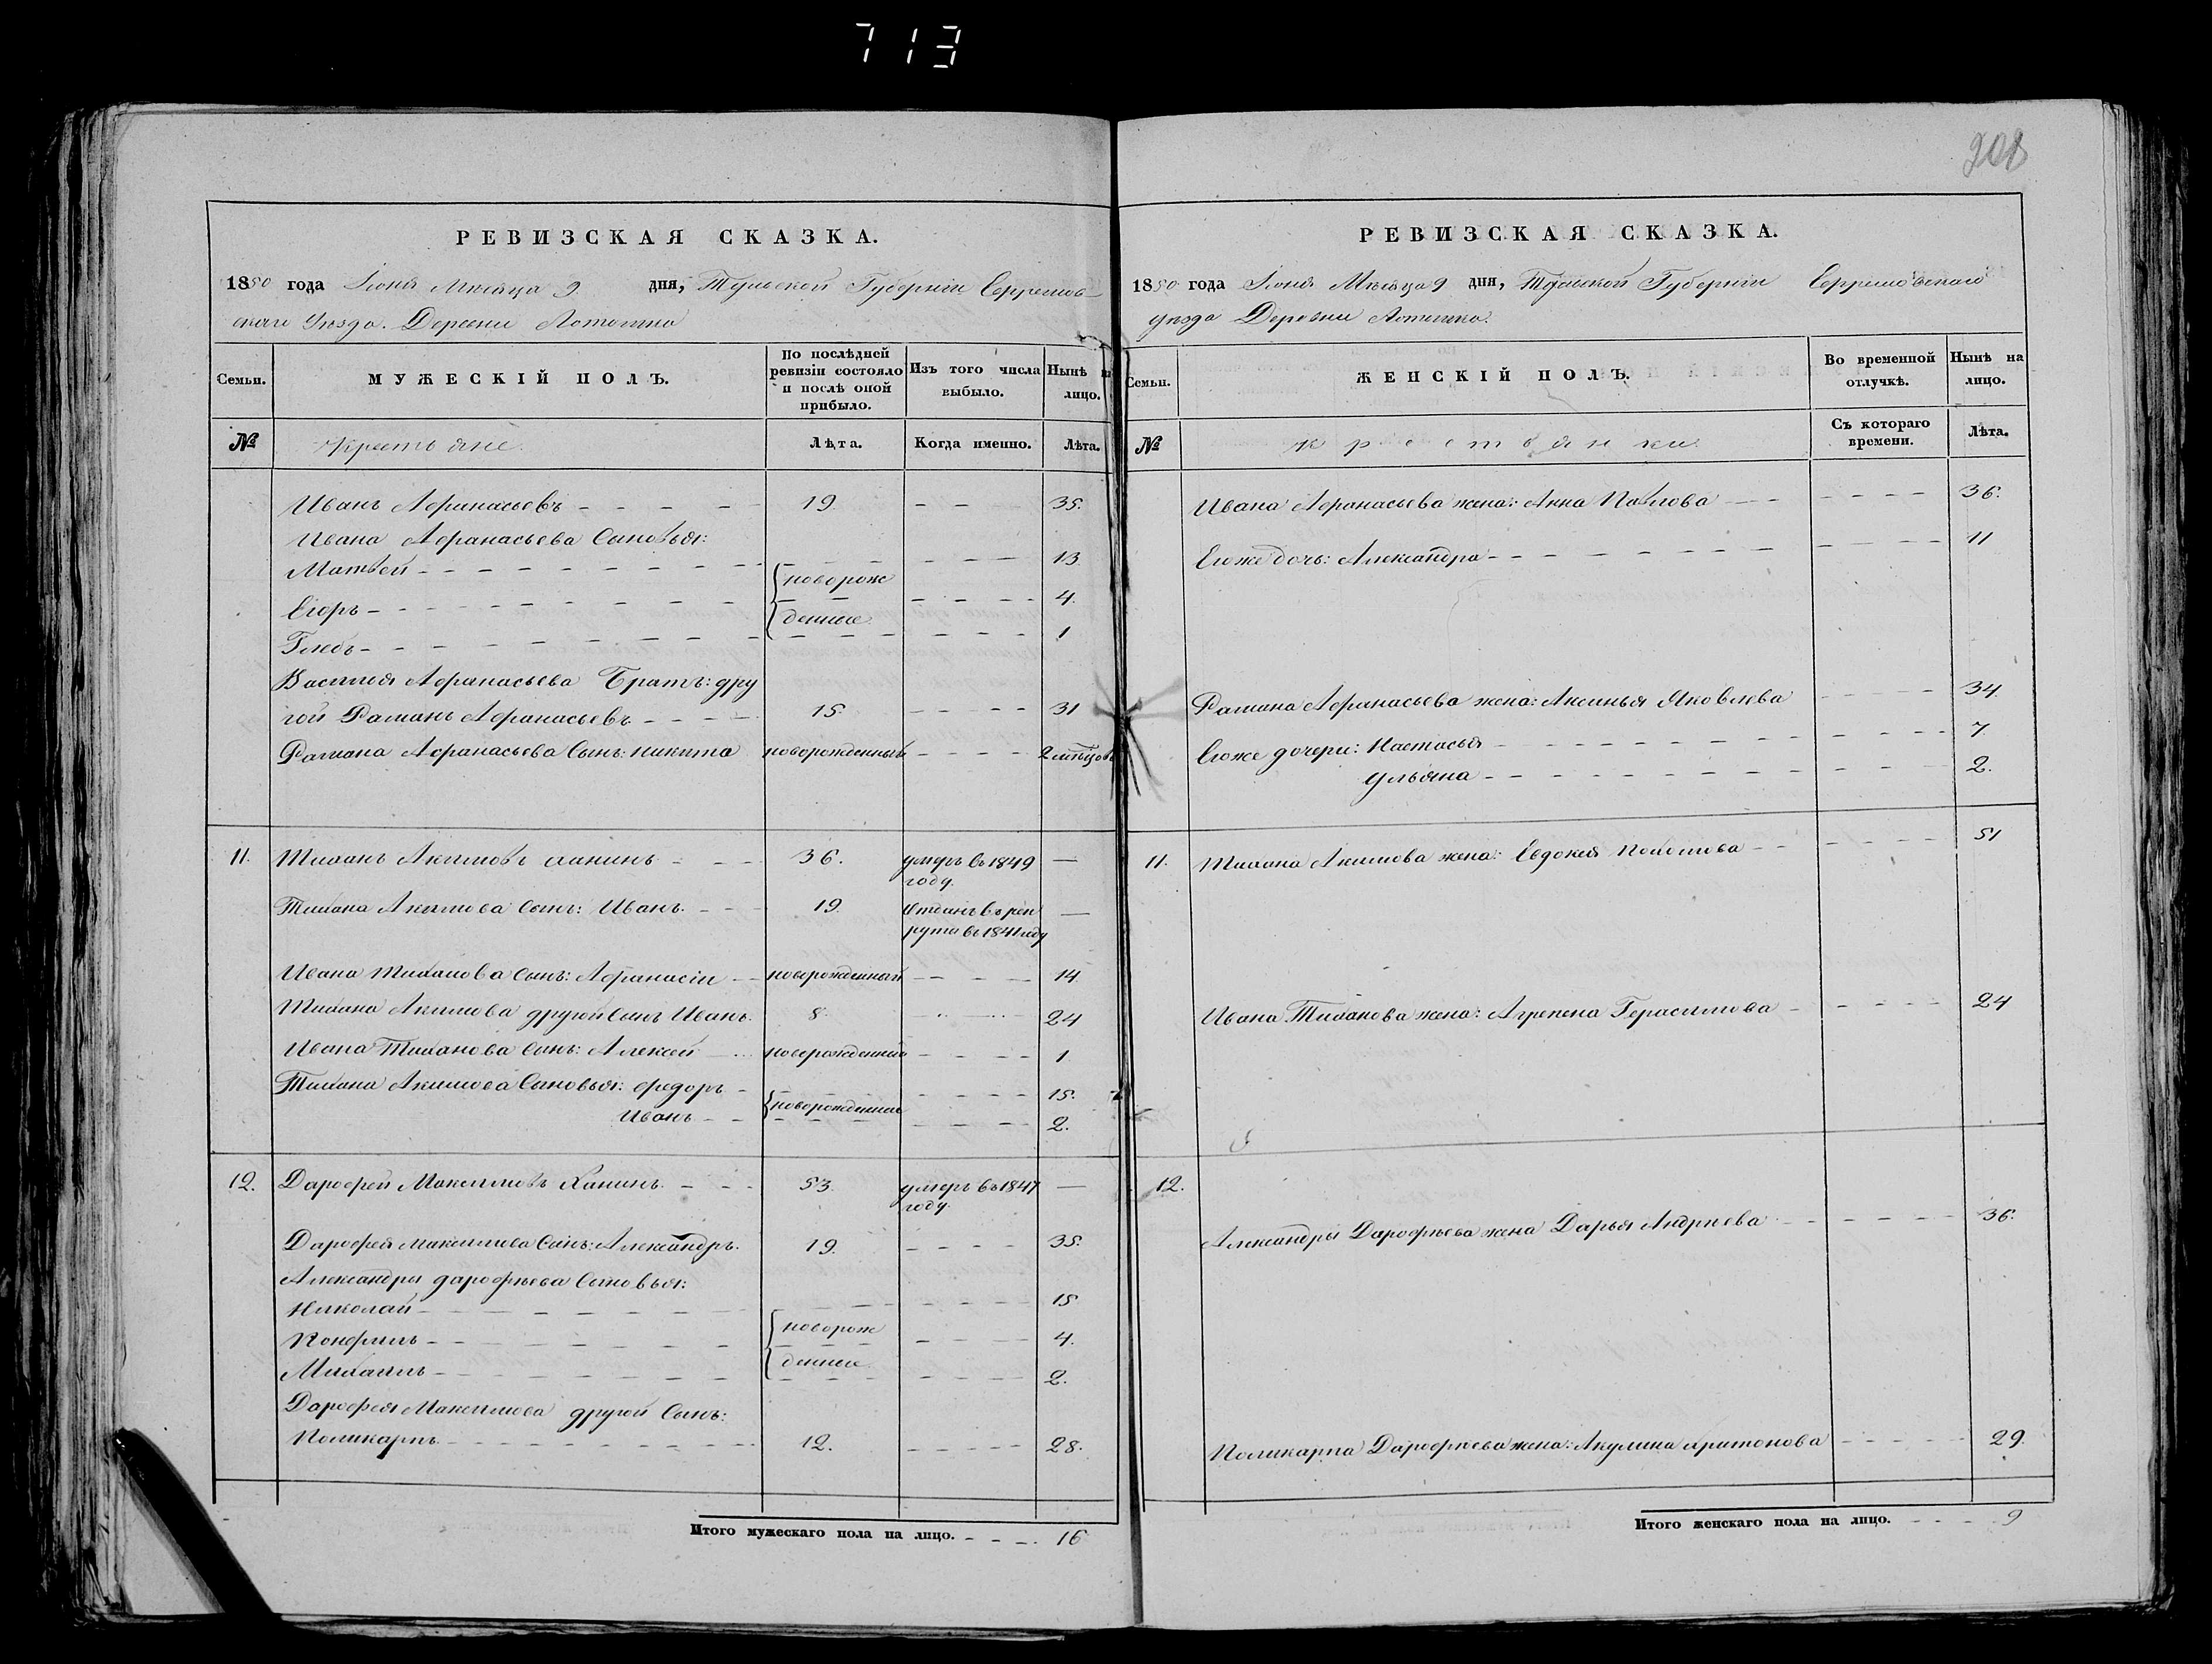 713
208
РЕВИЗСКАЯ СКАЗКА.
1850 года Іюня Мѣсяца 9 дня, Тульской Губерніи Ефремов-
скаго Уѣзда. Деревни
Семьи.
МУЖЕСКІЙ ПОЛЪ.
По послѣдней ревизіи состояло и послѣ оной прибыло.
Изъ того числа выбыло.
Нынѣ на лицо.
№ Крестьяне. Лѣта. Когда именно. Лѣта.
Иванъ Афанасьевъ - - - - 19. - - 35.
Ивана Афанасьева Сыновья:
Матвей - - - - 13.
новорож
Егоръ - - - - 4.
денные
Глебъ - - - - 1
Василия Афанасьева Братъ: дру
гой Раманъ Афанасьевъ - - - 15. - - - - 31
Рамана Афанасьева Сынъ: Никита новорожденный - - - 2 мѣсцовъ
11. Тиханъ Акимовъ Ханинъ - - - 36. умеръ въ 1849 —
году.
Тихана Акимова Сынъ: Иванъ. - - - 19. Отданъ в рек —
руты въ 1841 году
Ивана Тиханова Сынъ: Афанасіи - новорожденный - - - 14.
Тихана Акимова другой Сынъ Иванъ. 8. 24
Ивана Тиханова Сынъ: Алексей новорожденный - - - - 1.
Тихана Акимова Сыновья: Федоръ - - - - - 15.
новорожденные
Иванъ - - - - - 2.
12. Дарофей Максимовъ Ханинъ. - - - 53. умеръ въ 1847 —
году.
Дарофея Максимова Сынъ: Александръ. 19. - - - - 35.
Александры дарофѣева Сыновья:
Николай - - - - 15
новорож
Панфилъ - - - - 4.
денные
Михаилъ - - - - 2.
Дарофея Максимова другой Сынъ:
Поликарпъ. - - - - 12. - - - - 28.
Итого мужескаго пола на лицо. - - - 16
РЕВИЗСКАЯ СКАЗКА.
1850 года Іюня Мѣсяца 9 дня, Тульской Губерніи Ефремовскаго
уѣзда Деревни
Семьи.
ЖЕНСКІЙ ПОЛЪ.
Во временной отлучкѣ.
Нынѣ на лицо.
№ Крестьянки. Съ котораго времени. Лѣта.
Ивана Афанасьева жена: Анна Павлова - - - - 36.
Еюже дочь: Александра - - - - 11
Рамана Афанасьева жена: Аксинья Яковлева - - - - 34.
Еюже дочери: Настасья - - - - 7
Ульяна - - - - 2.
11. Тихана Акимова жена: Евдокея - - - - 51
Ивана Тиханова жена: Агрепена Герасимова - - - - 24
12.
Александры Дарофѣева жена Дарья Андриева - - - - 36.
Поликарпа Дарофѣева жена: Акулина Харитонова - - - - 29.
Итого женскаго пола на лицо. - - - - 9